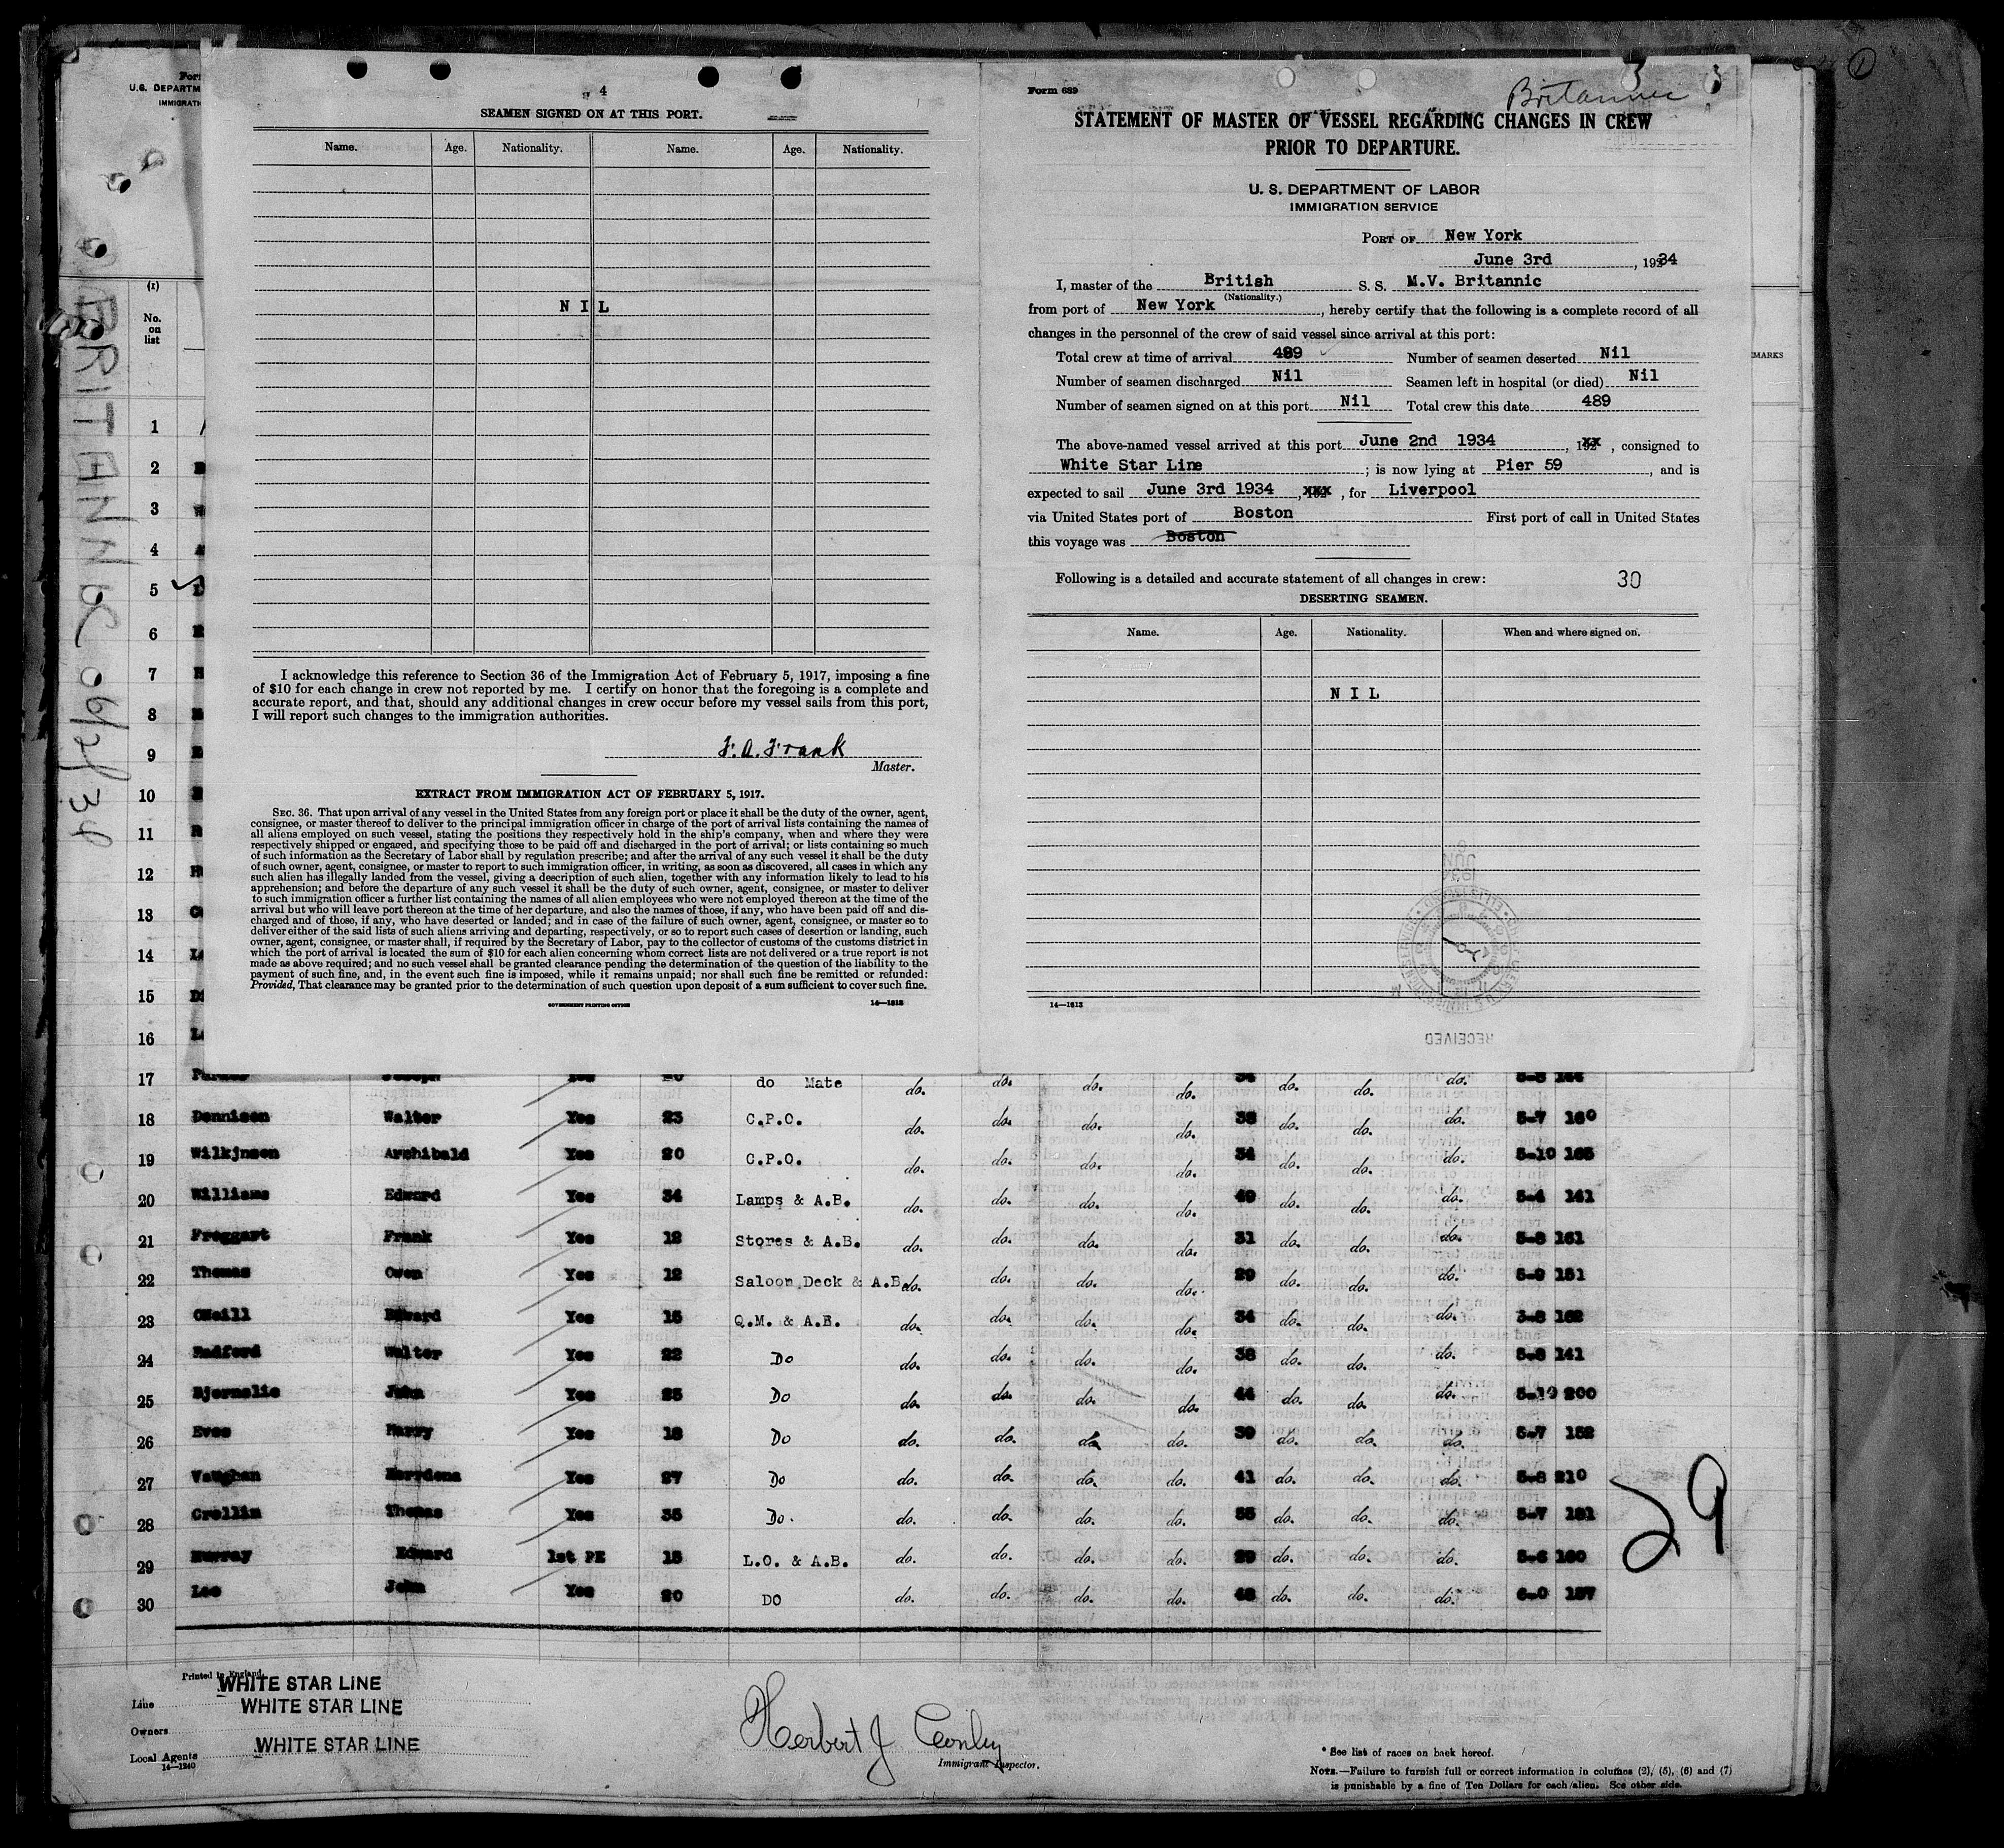 BRITANNIC 06/2/34
1
U.S. DEPARTM
IMMIGRATI
(1)
No.
on
list
1
2
3
4
5
6
7
8
9
10
11
12
13
14
15
16
4
SEAMEN SIGNED ON AT THIS PORT.
Name. Age. Nationality. Name. Age. Nationality.
N I L
I acknowledge this reference to Section 36 of the Immigration Act of February 5, 1917, imposing a fine
of $10 for each change in crew not reported by me. I certify on honor that the foregoing is a complete and
accurate report, and that, should any additional changes in crew occur before my vessel sails from this port,
I will report such changes to the immigration authorities.
F. A. Frank
Master.
EXTRACT FROM IMMIGRATION ACT OF FEBRUARY 5, 1917.
SEC. 36. That upon arrival of any vessel in the United States from any foreign port or place it shall be the duty of the owner, agent,
consignee, or master thereof to deliver to the principal immigration officer in charge of the port of arrival lists containing the names of
all aliens employed on such vessel, stating the positions they respectively hold in the ship's company, when and where they were
respectively shipped or engaged, and specifying those to be paid off and discharged in the port of arrival; or lists containing so much
of such information as the Secretary of Labor shall by regulation prescribe; and after the arrival of any such vessel it shall be the duty
of such owner, agent, consignee, or master to report to such immigration officer, in writing, as soon as discovered, all cases in which any
such alien has illegally landed from the vessel, giving a description of such alien, together with any information likely to lead to his
apprehension; and before the departure of any such vessel it shall be the duty of such owner, agent, consignee, or master to deliver
to such immigration officer a further list containing the names of all alien employees who were not employed thereon at the time of the
arrival but who will leave port thereon at the time of her departure, and also the names of those, if any, who have been paid off and dis-
charged and of those, if any, who have deserted or landed; and in case of the failure of such owner, agent, consignee, or master so to
deliver either of the said lists of such aliens arriving and departing, respectively, or so to report such cases of desertion or landing, such
owner, agent, consignee, or master shall, if required by the Secretary of Labor, pay to the collector of customs of the customs district in
which the port of arrival is located the sum of $10 for each alien concerning whom correct lists are not delivered or a true report is not
made as above required; and no vessel shall be granted clearance pending the determination of the question of the liability to the
payment of such fine, and, in the event such fine is imposed, while it remains unpaid; nor shall such fine be remitted or refunded:
Provided, That clearance may be granted prior to the determination of such question upon deposit of a sum sufficient to cover such fine.
GOVERNMENT PRINTING OFFICE 14—1613
Form 689
Britannic
3 3
STATEMENT OF MASTER OF VESSEL REGARDING CHANGES IN CREW
PRIOR TO DEPARTURE.
U. S. DEPARTMENT OF LABOR
IMMIGRATION SERVICE
PORT OF New York
June 3rd, 19234
I, master of the British S. S. M.V. Britannic
(Nationality.)
from port of New York, hereby certify that the following is a complete record of all
changes in the personnel of the crew of said vessel since arrival at this port:
Total crew at time of arrival 489 Number of seamen deserted Nil
Number of seamen discharged Nil Seamen left in hospital (or died) Nil
Number of seamen signed on at this port Nil Total crew this date 489
The above-named vessel arrived at this port June 2nd 1934, 192xx, consigned to
White Star Line; is now lying at Pier 59, and is
expected to sail June 3rd 1934, xxx, for Liverpool
via United States port of Boston First port of call in United States
this voyage was Boston
Following is a detailed and accurate statement of all changes in crew: 30
DESERTING SEAMEN.
Name. Age. Nationality. When and where signed on.
N I L
14—1613
RECEIVED
MARKS
17 do Mate do. do. do. do. do. do. do.
18 Dennison Walter Yes 23 C.P.O. do. do. do. do. 38 do. do. do. 5-7 160
19 Wilkjnson Archibald Yes 20 C.P.O. do. do. do. do. 34 do. do. do. 5-10 165
20 Williams Edward Yes 34 Lamps & A.B. do. do. do. do. 49 do. do. do. 5-4 141
21 Froggart Frank Yes 12 Stores & A.B. do. do. do. do. 31 do. do. do. 5-8 161
22 Thomas Owen Yes 12 Saloon Deck & A.B. do. do. do. do. 29 do. do. do. 5-9 151
23 ONeill Edward Yes 15 Q.M. & A.B. do. do. do. do. 34 do. do. do. 5-8 162
24 Radford Walter Yes 22 Do do. do. do. do. 38 do. do. do. 5-8 141
25 Bjornelie John Yes 25 Do do. do. do. do. 44 do. do. do. 5-10 200
26 Eves Harry Yes 18 Do do. do. do. do. 39 do. do. do. 5-7 152
27 Vaughan Yes 27 Do do. do. do. do. 41 do. do. do. 5-8 210
28 Crellin Thomas Yes 35 Do. do. do. do. do. 55 do. do. do. 5-7 181
29 Murray Edward 1st PE 15 L.O. & A.B. do. do. do. do. 29 do. do. do. 5-6 160
30 Lee John Yes 20 DO do. do. do. do. 48 do. do. do. 6-0 157
29
Printed in England.
WHITE STAR LINE
Line WHITE STAR LINE
Owners
Local Agents WHITE STAR LINE
14—1240
Herbert J Conley
Immigrant Inspector.
* See list of races on back hereof.
NOTE.—Failure to furnish full or correct information in columns (2), (5), (6) and (7)
is punishable by a fine of Ten Dollars for each alien. See other side.